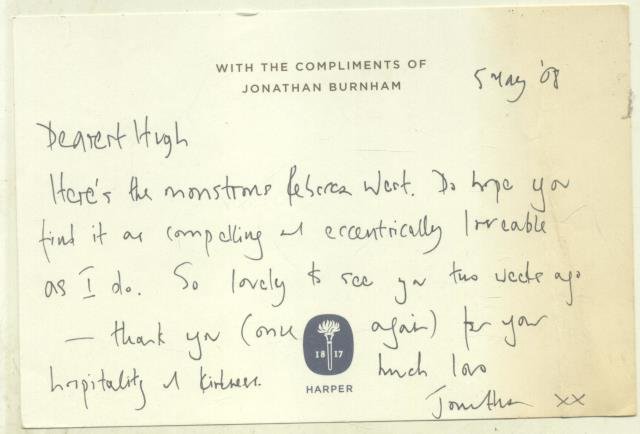 WITH THE COMPLIMENTS OF
JONATHAN BURNHAM
5 May '08
Dearest Hugh
Here's the monstrous Rebecca West. Do hope you
find it as compelling and eccentrically loveable
as I do. So lovely to see you two weeks ago
— thank you (once again) for your
hospitality & kindness. Much love
Jonathan xx
18 17
HARPER